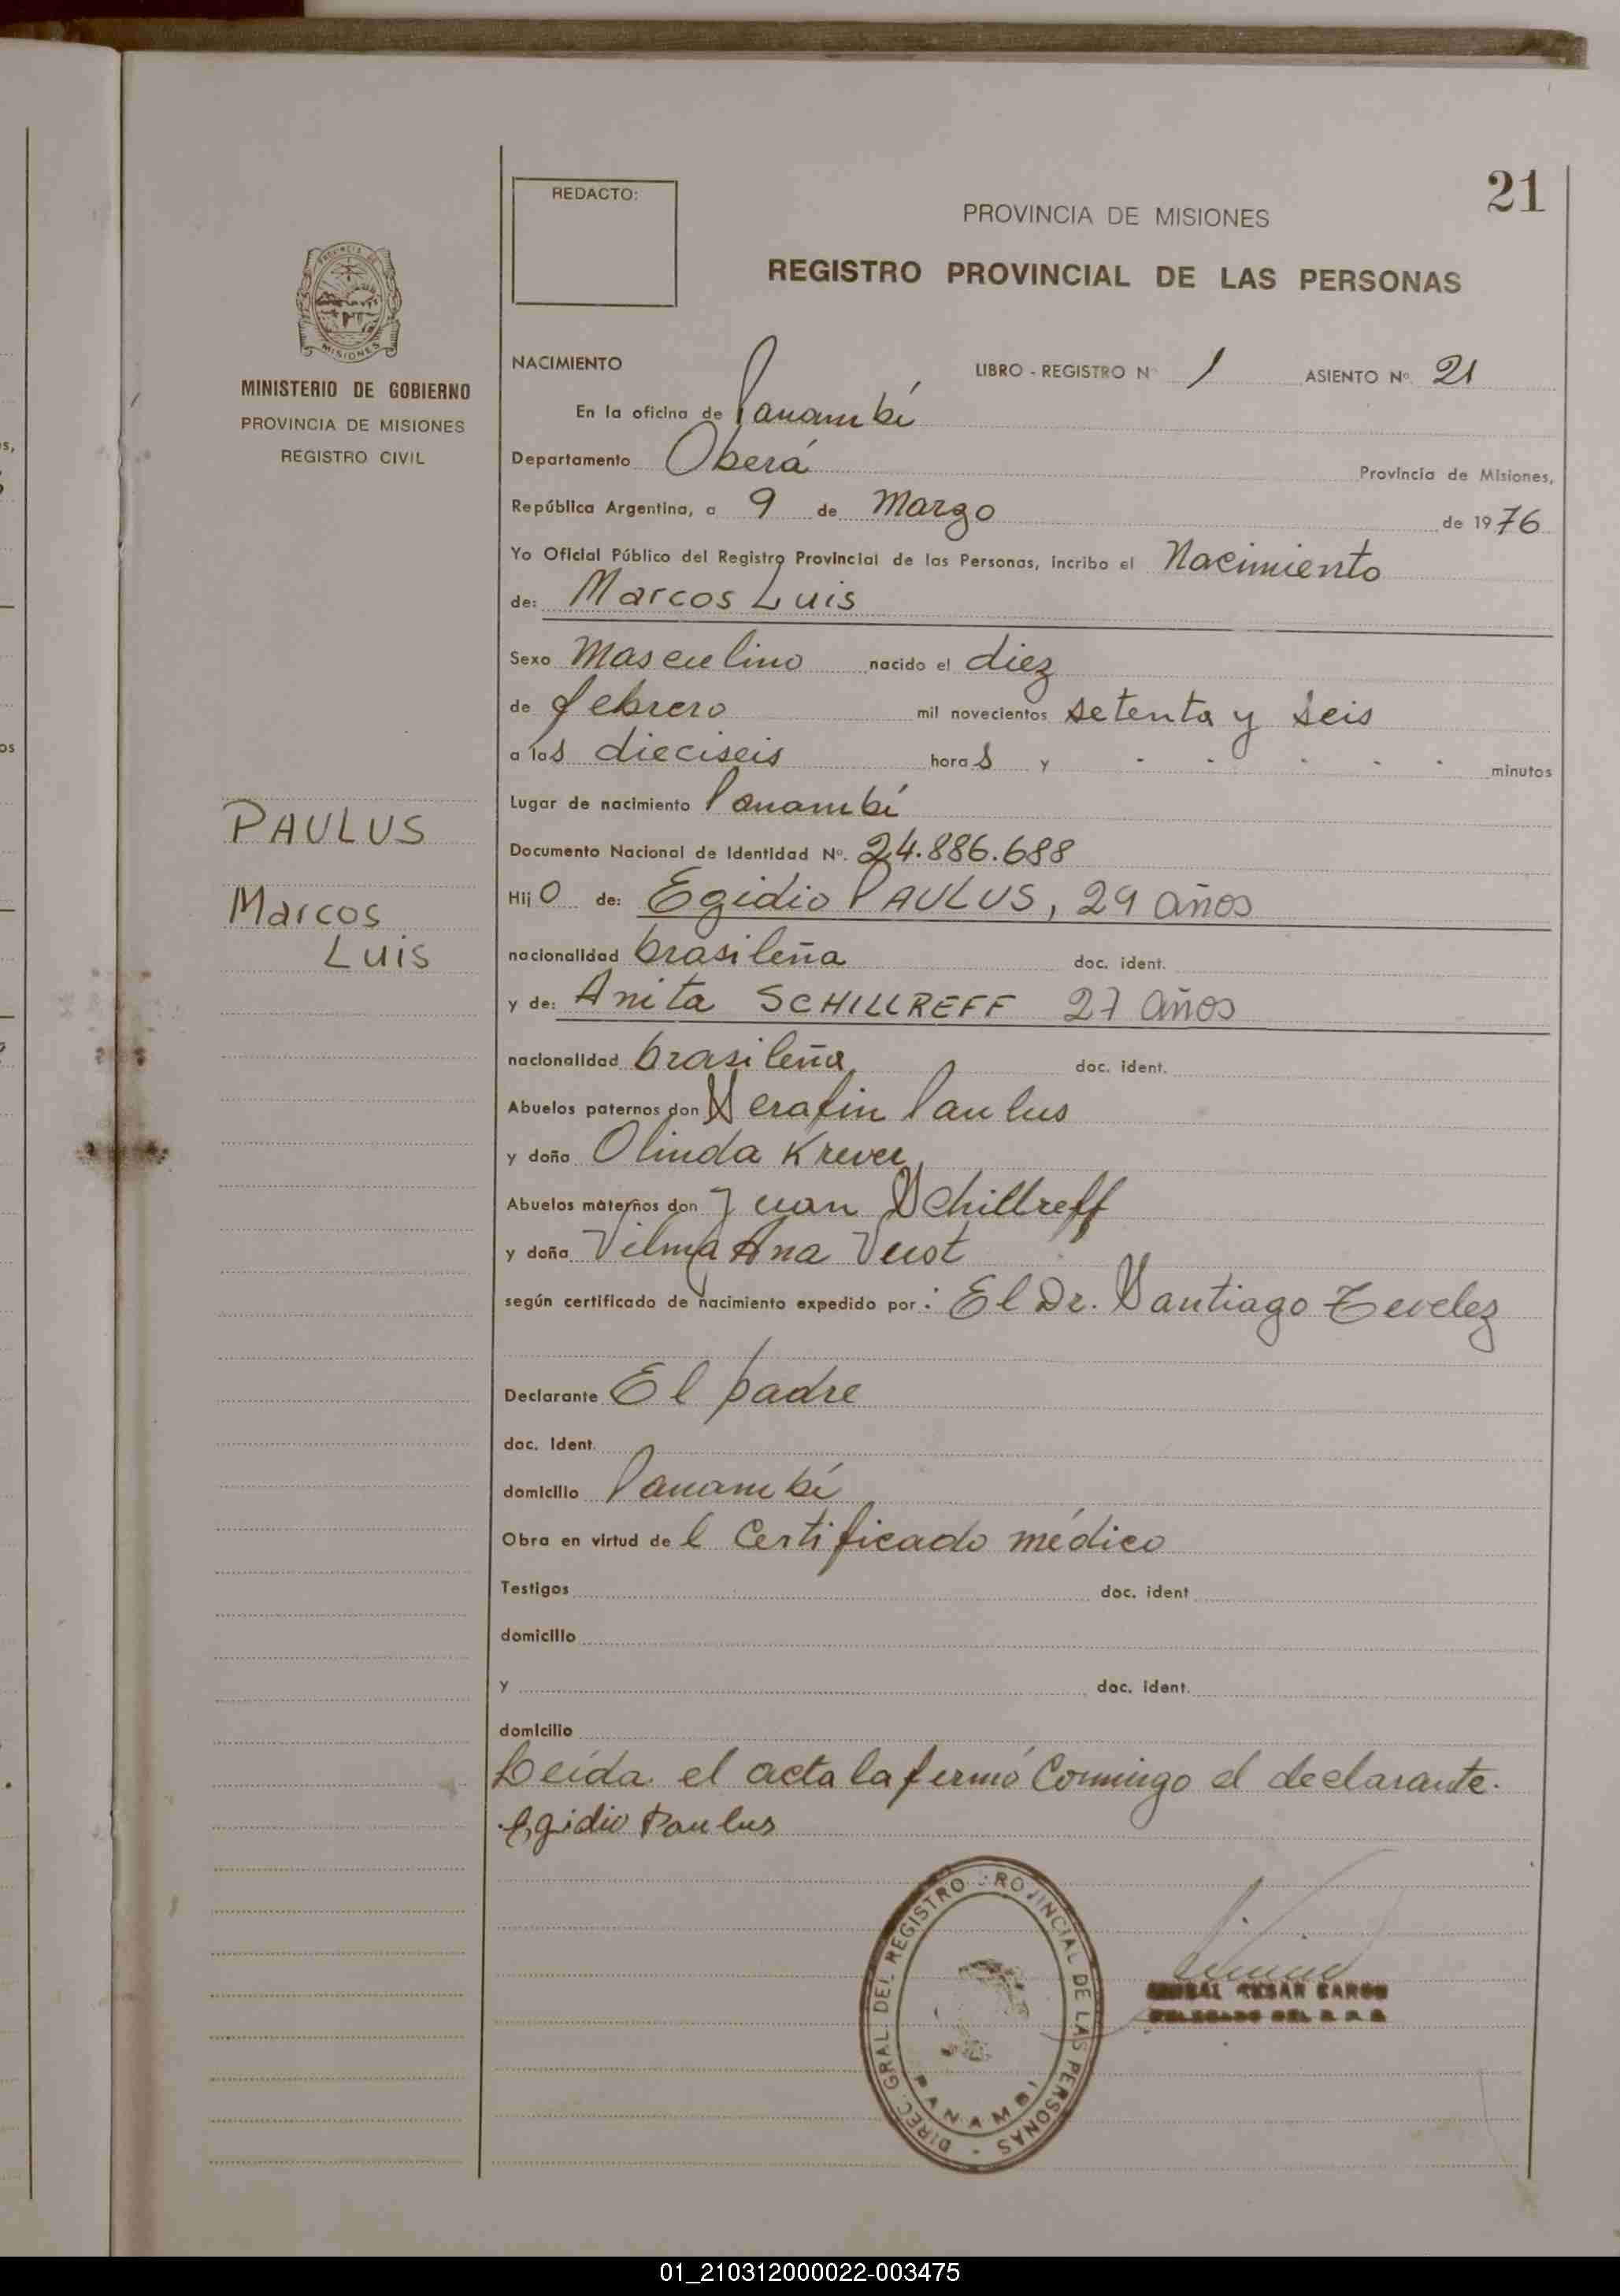 21
REDACTO:
PROVINCIA DE MISIONES
REGISTRO PROVINCIAL DE LAS PERSONAS
PROVINCIA DE
MISIONES
MINISTERIO DE GOBIERNO
PROVINCIA DE MISIONES
REGISTRO CIVIL
NACIMIENTO LIBRO - REGISTRO N° 1 ASIENTO N° 21
En la oficina de Panambí
Departamento Oberá Provincia de Misiones,
República Argentina, a 9 de Marzo de 1976
Yo Oficial Público del Registro Provincial de las Personas, incribo el Nacimiento
de: Marcos Luis
Sexo Masculino nacido el diez
de febrero mil novecientos setenta y seis
a las dieciseis horas y - - - - - minutos
Lugar de nacimiento Panambí
PAULUS
Marcos
Luis
Documento Nacional de Identidad N°. 24.886.688
Hijo de: Egidio PAULUS, 29 años
nacionalidad brasileña doc. ident.
y de: Anita SCHILLREFF 27 años
nacionalidad brasileña doc. ident.
Abuelos paternos don Serafin Paulus
y doña Olinda Krever
Abuelos maternos don Juan Schillreff
y doña Vilma Ana
según certificado de nacimiento expedido por: El Dr. Santiago
Declarante El padre
doc. ident.
domicilio Panambí
Obra en virtud del Certificado médico
Testigos doc. ident
domicilio
y doc. ident.
domicilio
Leída el acta la firmó Conmigo el declarante.
Egidio Paulus
DIREC. GRAL. DEL REGISTRO PROVINCIAL DE LAS PERSONAS -
PANAMBI
CESAR
01_210312000022-003475